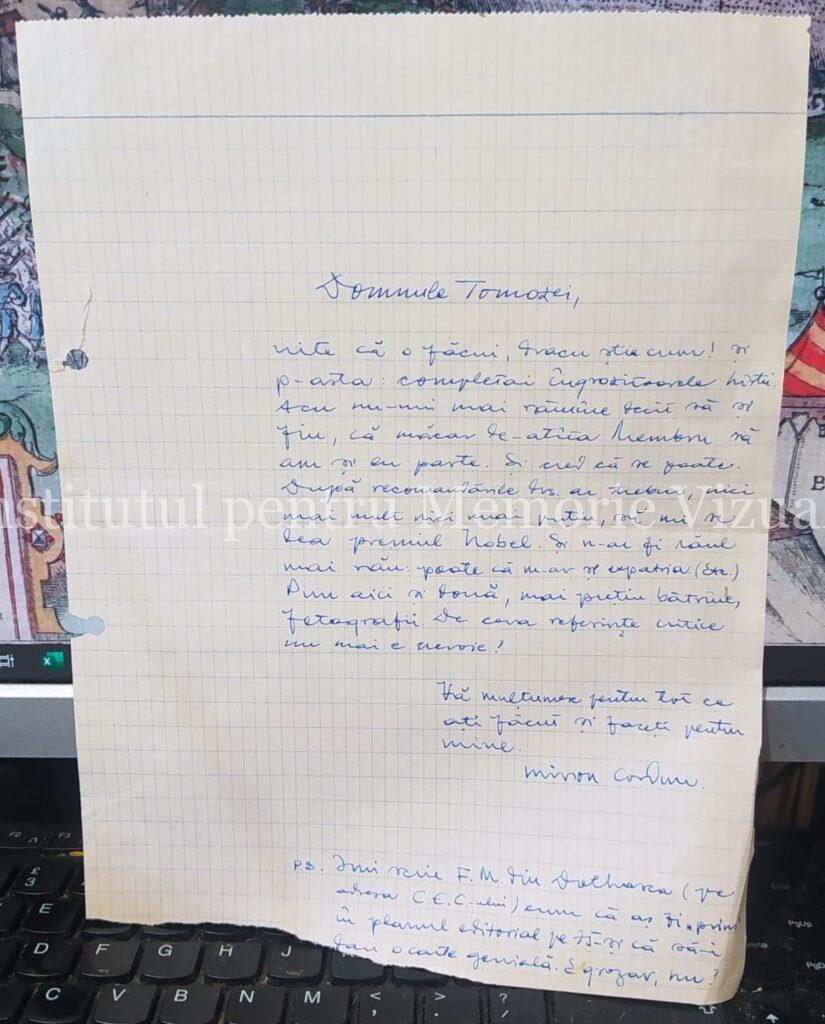 Domnule Tomozei,
uite că o făcui, dracu știe cum! și
p-asta: completai îngrozitoarele hîrtii.
Acu nu-mi mai rămîne decît să și
fiu, că măcar de-atîta Membru să
am și eu parte. Și cred că se poate.
După recomandările dvs. ar trebui, nici
mai mult nici mai puțin, să mi se
dea premiul Nobel. Și n-ar fi răul
mai rău: poate că m-ar și expatria. (Etc.)
Pun aici și două, mai puțin bătrîne,
fotografii. De ceva referințe critice
nu mai e nevoie!
Vă mulțumesc pentru tot ce
ați făcut și faceți pentru
mine.
Miron Cordun.
P.S. Îmi scrie F.M. din Dolhasca (pe
adresa C.E.C.-ului) cum că aș fi
în planul editorial pe și că să-i
dau o carte genială. E grozav, nu?
Institutul pentru Memorie Vizua